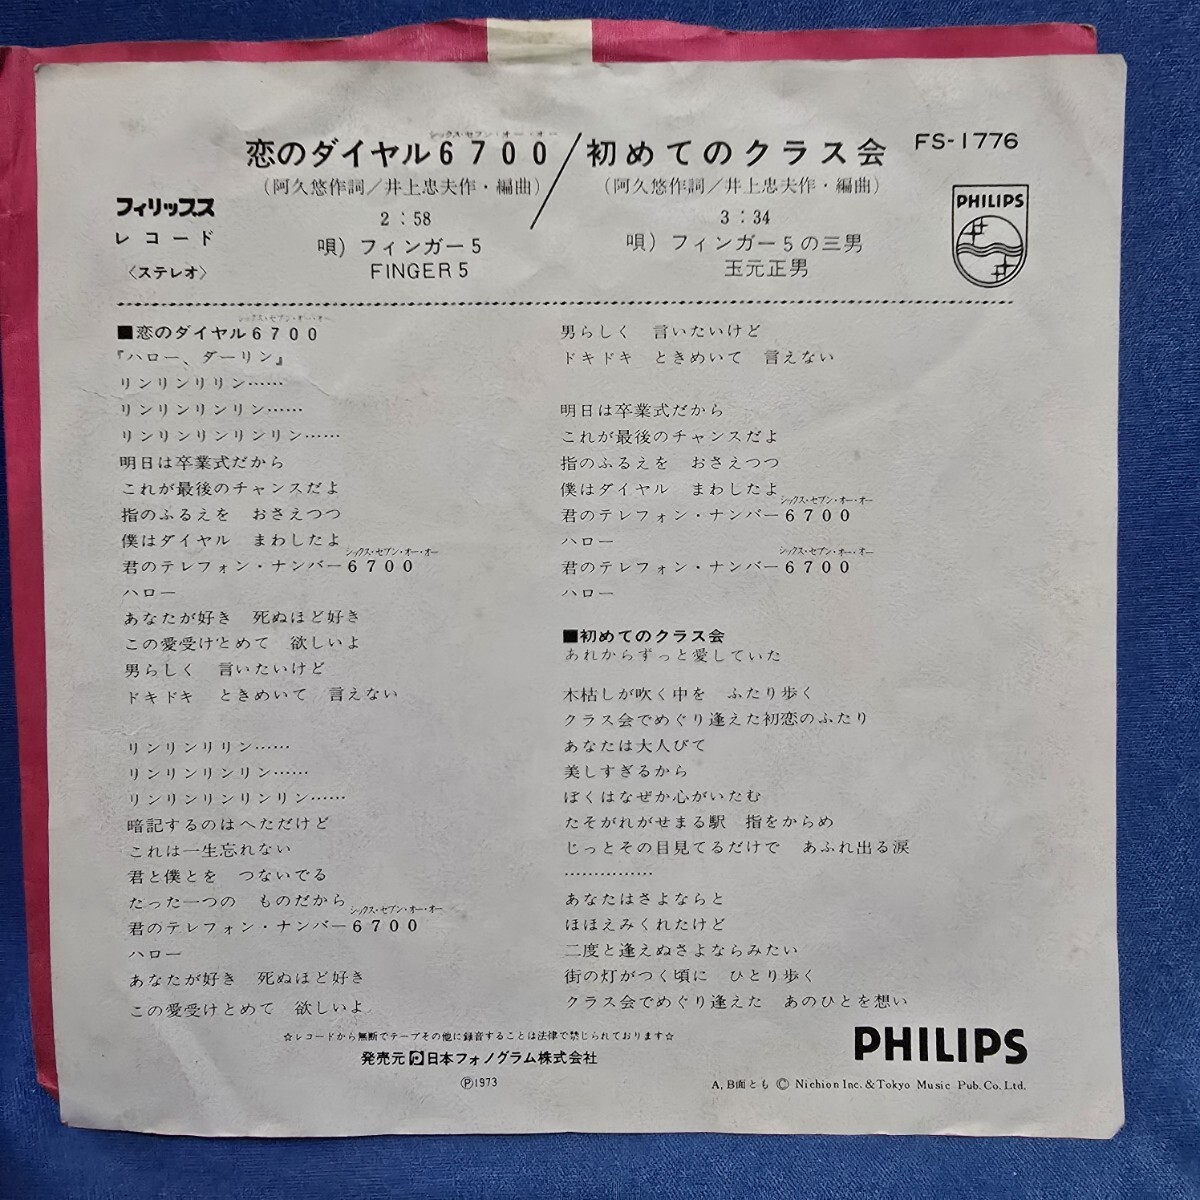 恋のダイヤル6700／初めてのクラス会 FS-1776
シックス・セブン・オー・オー
(阿久悠作詞／井上忠夫作・編曲) (阿久悠作詞／井上忠夫作・編曲)
フィリップス
レコード
〈ステレオ〉
2：58
唄）フィンガー5
FINGER 5
3：34
唄）フィンガー5の三男
玉元正男
PHILIPS
■恋のダイヤル6700
シックス・セブン・オー・オー
『ハロー、ダーリン』
リンリンリリン……
リンリンリンリン……
リンリンリンリンリン……
明日は卒業式だから
これが最後のチャンスだよ
指のふるえを　おさえつつ
僕はダイヤル　まわしたよ
シックス・セブン・オー・オー
君のテレフォン・ナンバー6700
ハロー
あなたが好き　死ぬほど好き
この愛受けとめて　欲しいよ
男らしく　言いたいけど
ドキドキ　ときめいて　言えない
リンリンリリン……
リンリンリンリン……
リンリンリンリンリン……
暗記するのはへただけど
これは一生忘れない
君と僕とを　つないでる
たった一つの　ものだから
シックス・セブン・オー・オー
君のテレフォン・ナンバー6700
ハロー
あなたが好き　死ぬほど好き
この愛受けとめて　欲しいよ
男らしく　言いたいけど
ドキドキ　ときめいて　言えない
明日は卒業式だから
これが最後のチャンスだよ
指のふるえを　おさえつつ
僕はダイヤル　まわしたよ
シックス・セブン・オー・オー
君のテレフォン・ナンバー6700
ハロー
シックス・セブン・オー・オー
君のテレフォン・ナンバー6700
ハロー
■初めてのクラス会
あれからずっと愛していた
木枯しが吹く中を　ふたり歩く
クラス会でめぐり逢えた初恋のふたり
あなたは大人びて
美しすぎるから
ぼくはなぜか心がいたむ
たそがれがせまる駅　指をからめ
じっとその目見てるだけで　あふれ出る涙
……………
あなたはさよならと
ほほえみくれたけど
二度と逢えぬさよならみたい
街の灯がつく頃に　ひとり歩く
クラス会でめぐり逢えた　あのひとを想い
☆レコードから無断でテープその他に録音することは法律で禁じられております☆
発売元 日本フォノグラム株式会社
Ⓟ1973
PHILIPS
A, B面とも © Nichion Inc. & Tokyo Music Pub. Co. Ltd.